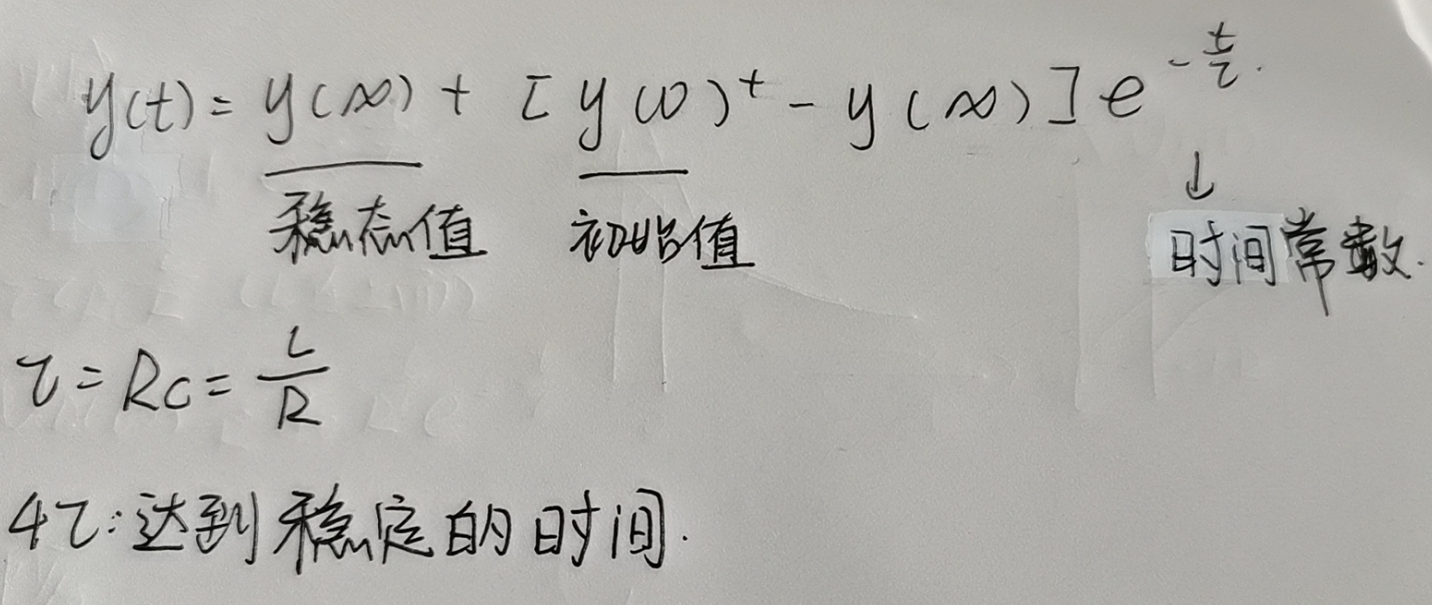 y(t) = y(∞) + [y(0)⁺ - y(∞)] e^{-t/τ}.
稳态值 初始值 ↓
时间常数.
τ = RC = L/R
4τ: 达到稳定的时间.